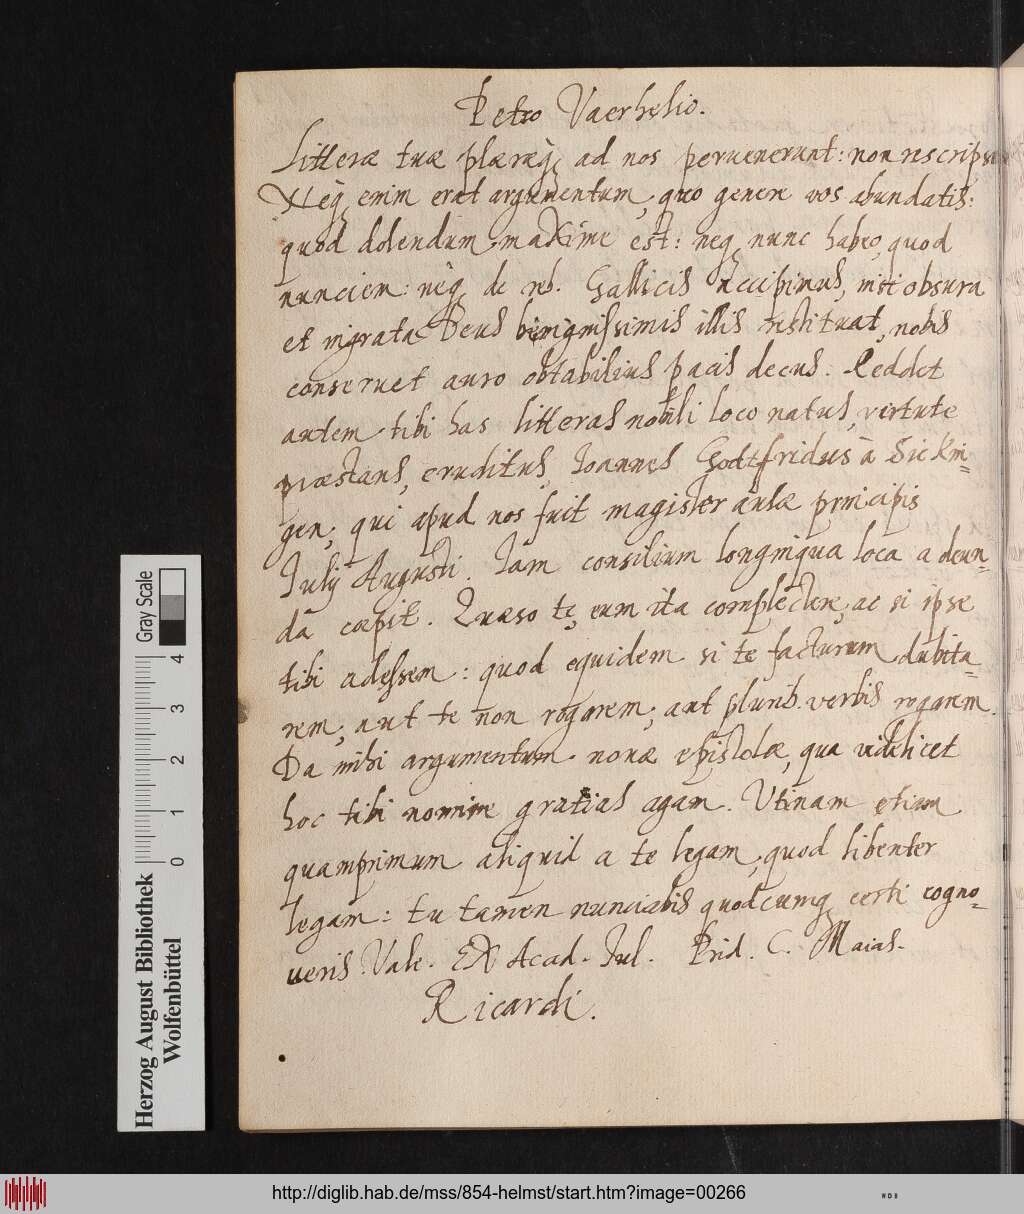 Petro Vaerhelio.
Litteræ tuæ plæræq; ad nos peruenerunt: non rescrips
Neq; enim erat argumentum, quo genere vos abundatis:
quod dolendum maxime est: neq; nunc habeo, quod
nunciem: neq; de reb. Gallicis accipimus, nisi obsura
et ingrata Deus benignissimis illis restituat, nobis
conseruet auro obtabilius pacis decus. Reddet
autem tibi has litteras nobili loco natus, virtute
præstans, eruditus, Ioannes Godtfridus à Sickin-
gen; qui apud nos fuit magister aulæ principis
Iulij Augusti. Iam consilium longinqua loca adeun-
da cœpit. Quæso te, eum ita complectere, ac si ipse
tibi adessem: quod equidem si te facturum dubita-
rem; aut te non rogarem; aut plurib. verbis rogarem.
Da mihi argumentum nouæ epistolæ, qua videlicet
hoc tibi nomine gratias agam. Vtinam etiam
quamprimum aliquid a te legam, quod libenter
legam: tu tamen nunciabis quodcumq; certi cogno-
ueris. Vale. Ex Acad. Iul. Prid. C. Maias.
Ricardi.
Herzog August Bibliothek
Wolfenbüttel
Gray Scale
0 1 2 3 4
http://diglib.hab.de/mss/854-helmst/start.htm?image=00266